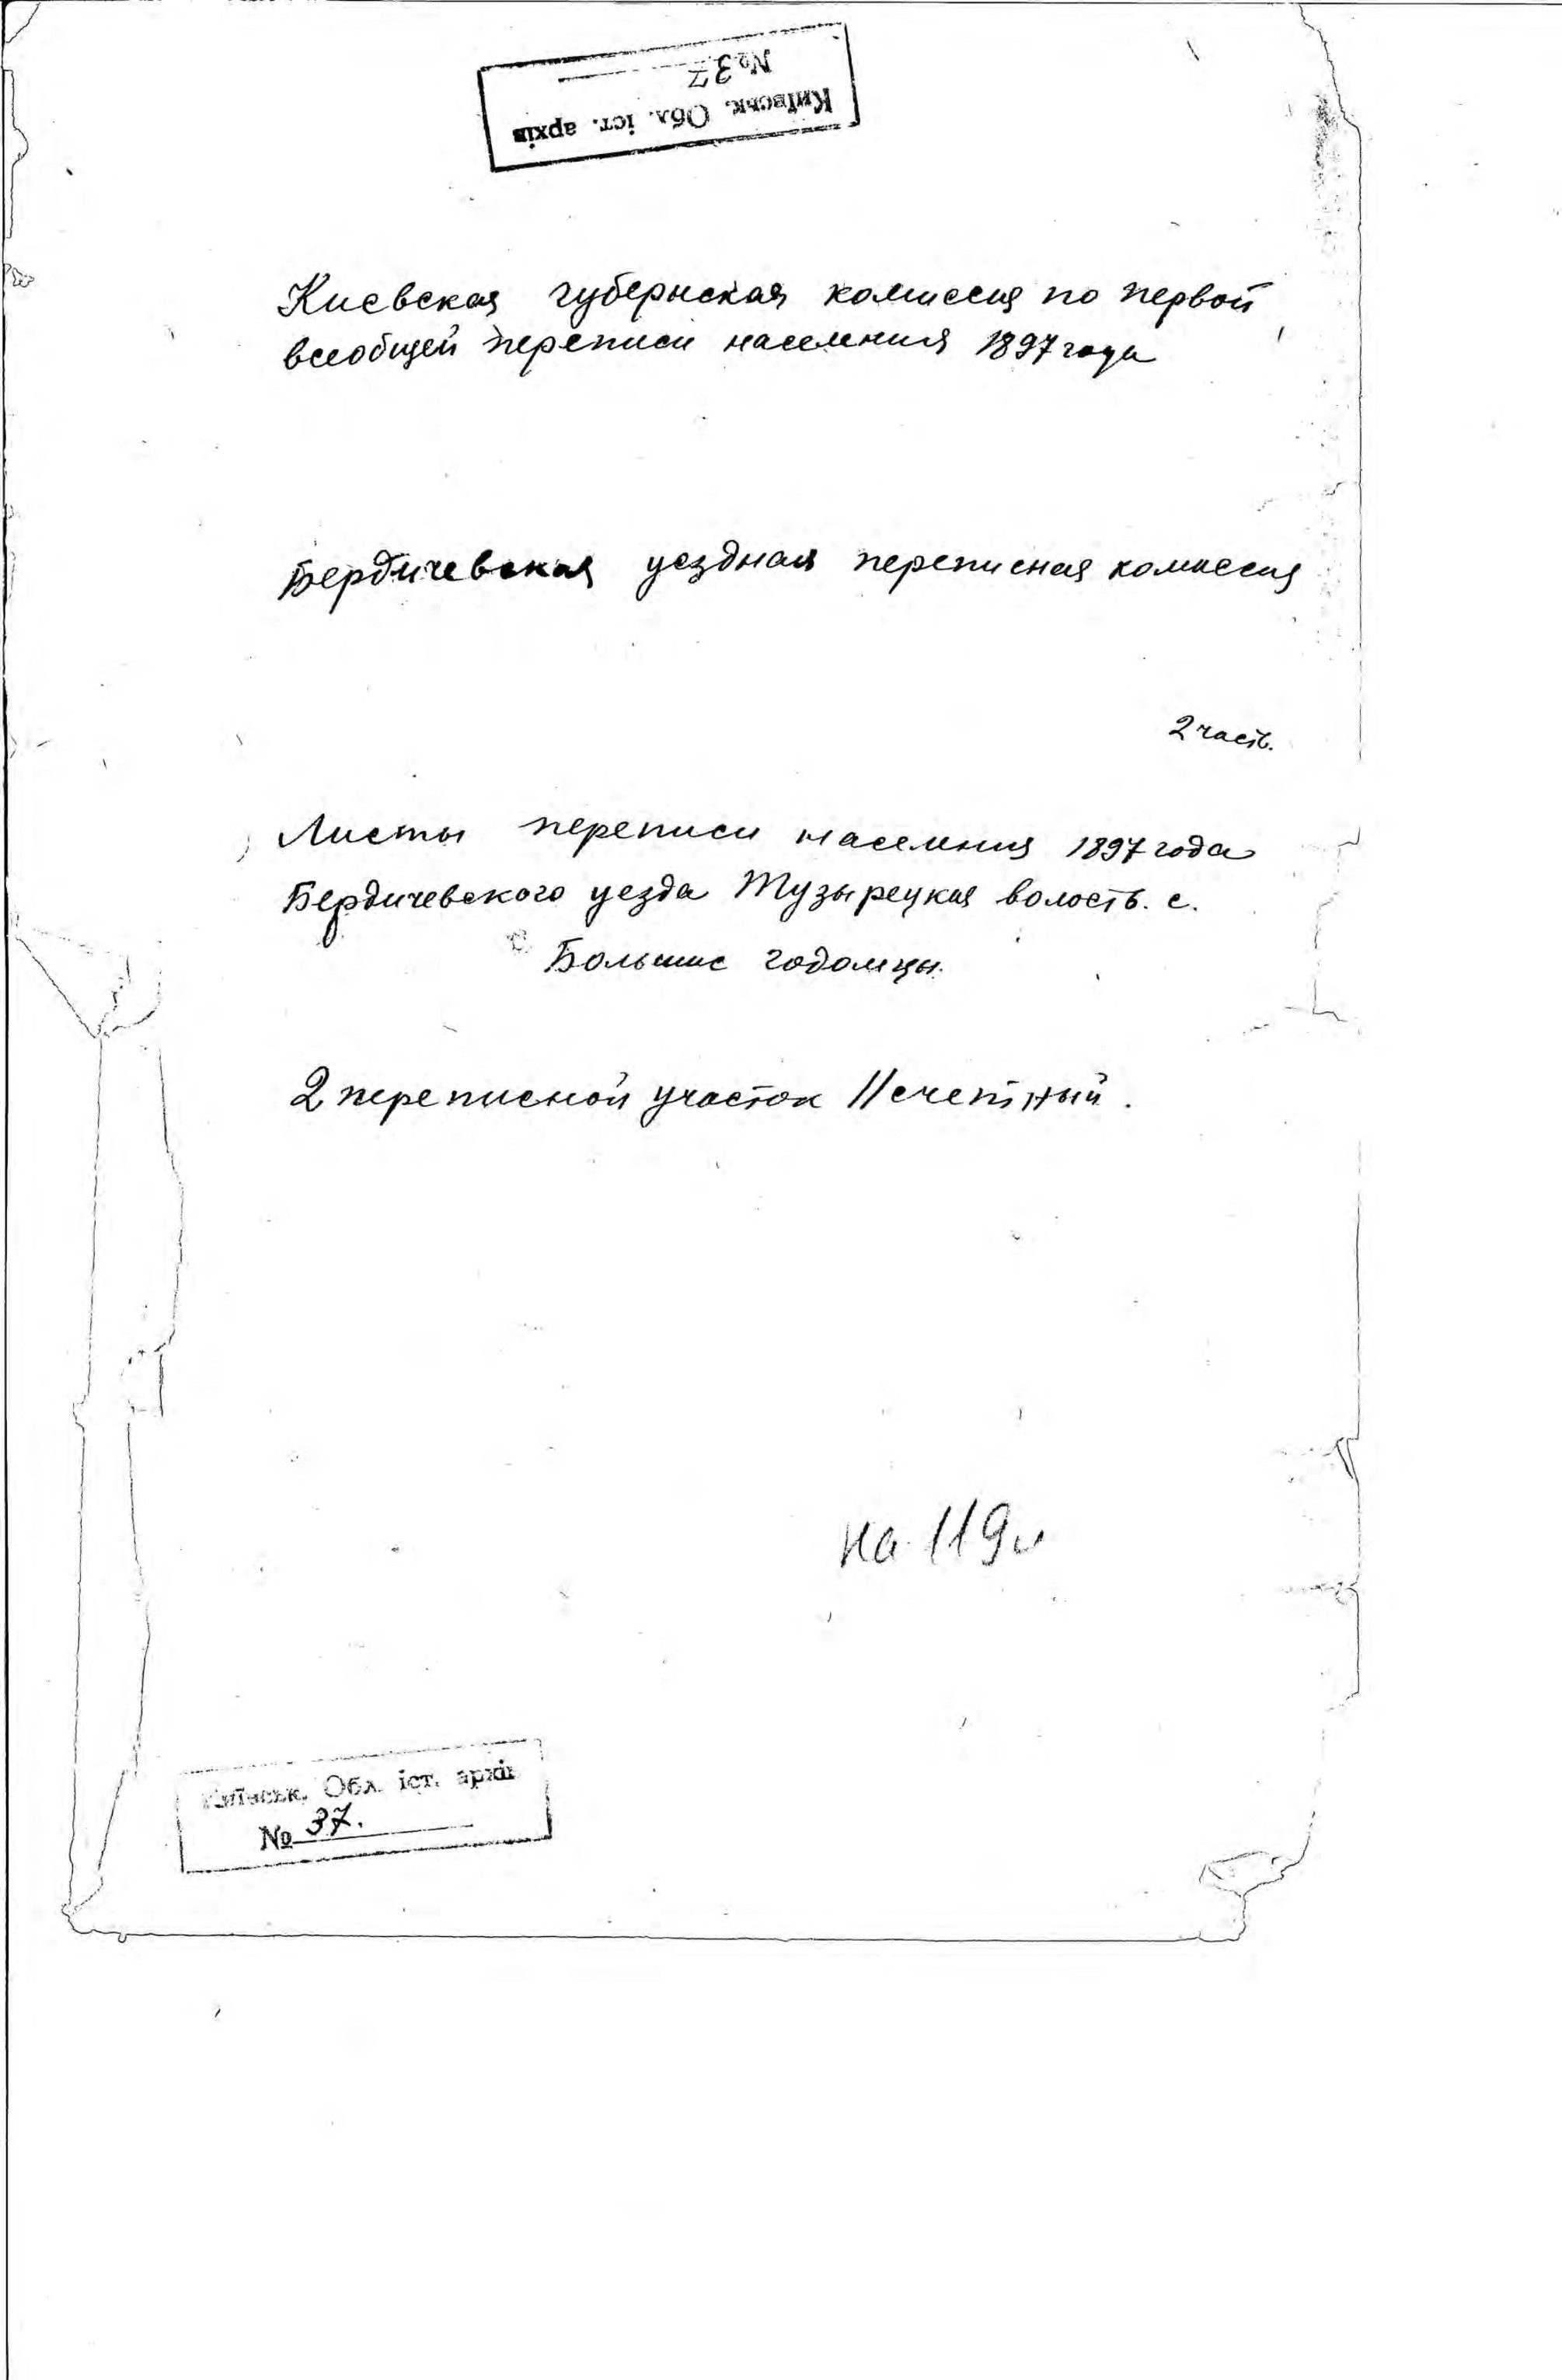 Київськ. Обл. іст. архів
№ 37
Киевская губернская комиссия по первой
всеобщей переписи населения 1897 года
Бердичевская уездная переписная комиссия
2 часть.
Листы переписи населения 1897 года
Бердичевского уезда Тузырецкая волость. с.
Большие годомцы.
2 переписной участок 11 счетный.
на 119 л
Київськ. Обл. іст. архів
№ 37.